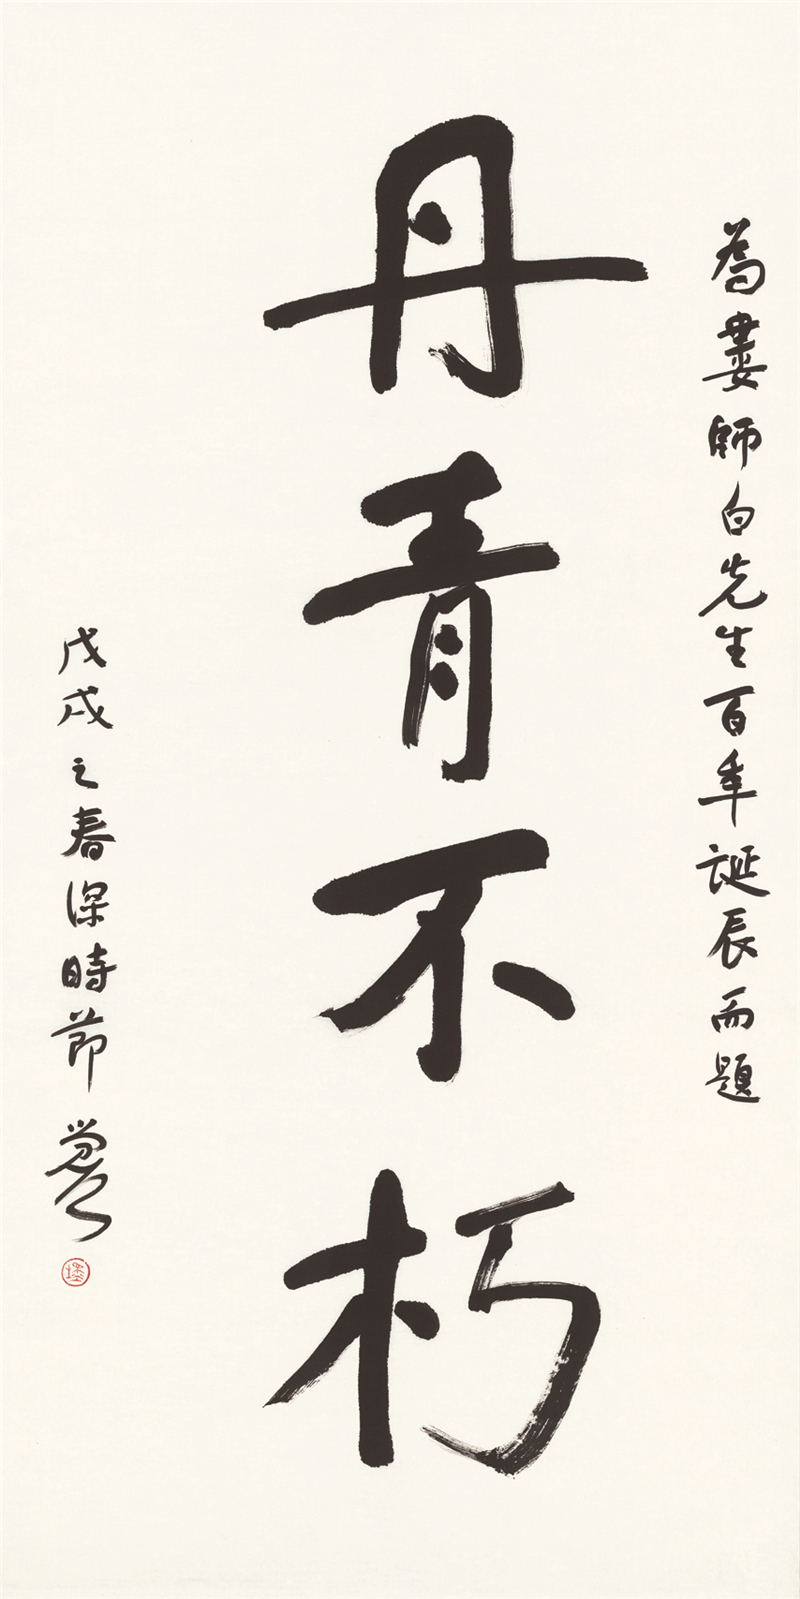 為婁師白先生百年誕辰而題
丹青不朽
戊戌之春深時節